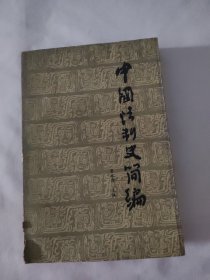 中国法制史简编